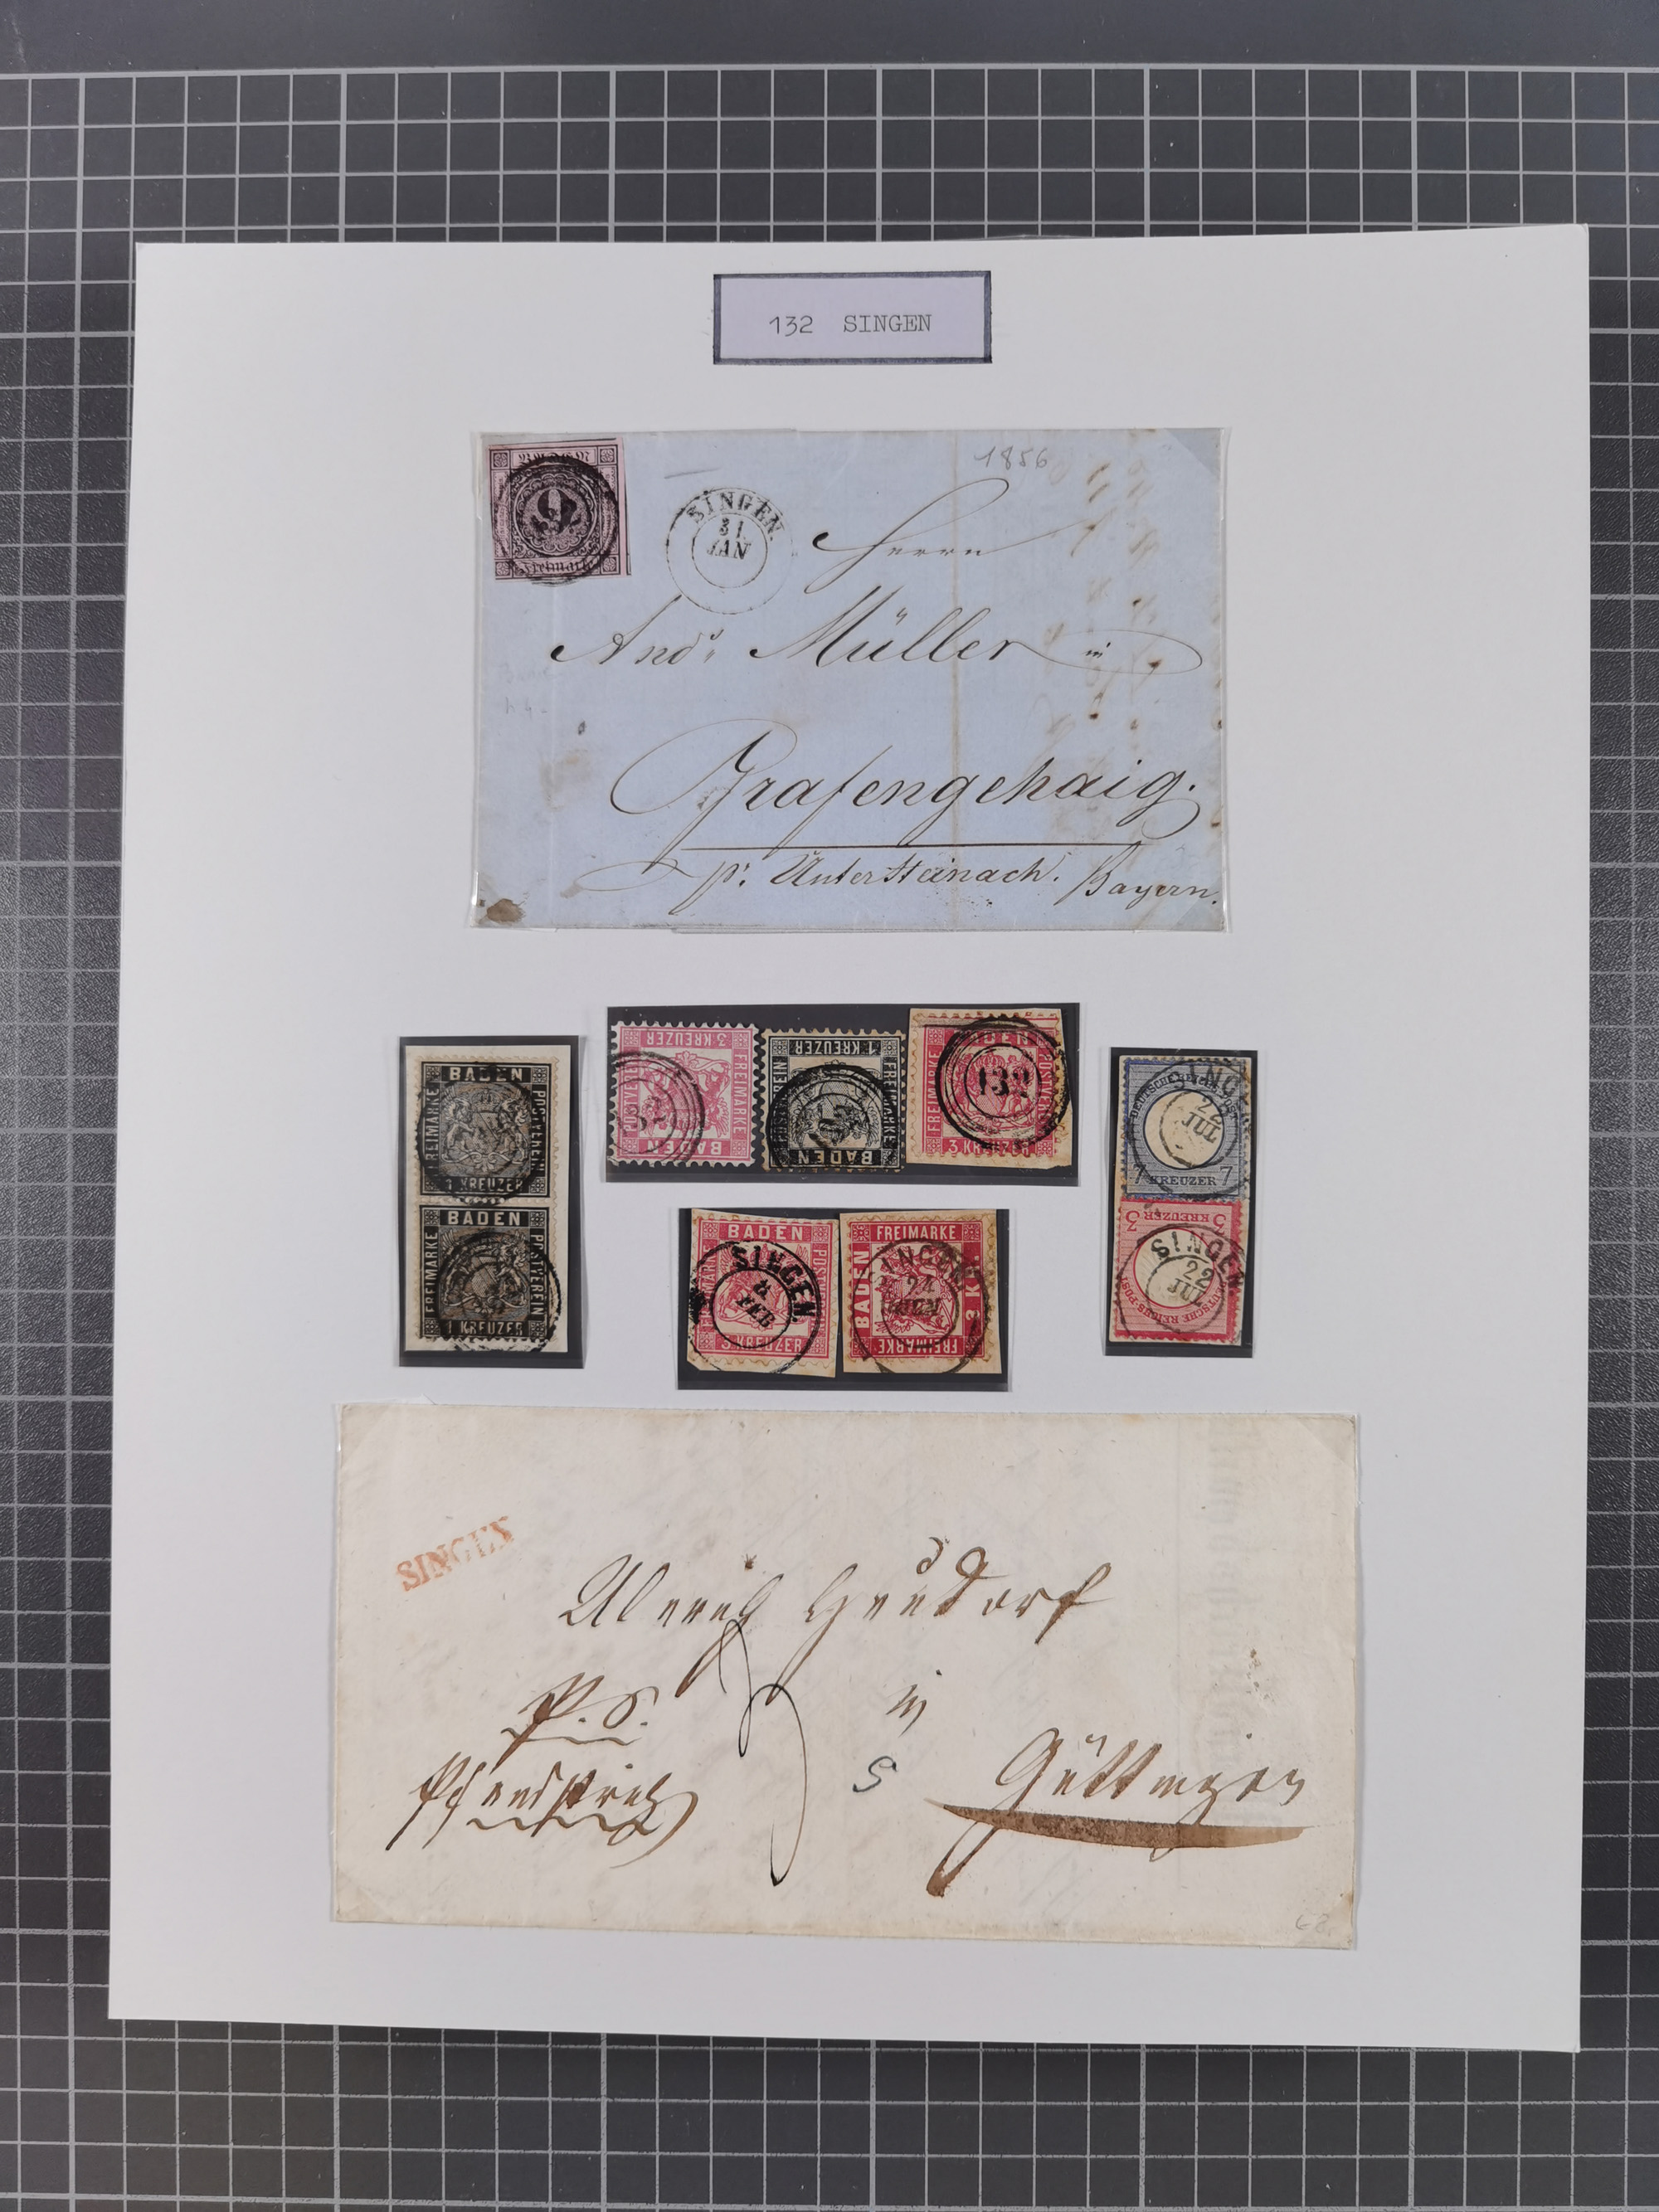 132 SINGEN
1856
9
Freimarke
SINGEN
31
JAN
Herrn
And. Müller in
Grafengehaig.
pr. Untersteinach. Bayern.
BADEN
FREIMARKE
POSTVEREIN
1 KREUZER
BADEN
FREIMARKE
POSTVEREIN
1 KREUZER
3 KREUZER
FREIMARKE
BADEN
32
1 KREUZER
FREIMARKE
BADEN
FREIMARKE
POSTVEREIN
3 KREUZER
132
DEUTSCHE
22
JUL
7 KREUZER 7
3 KREUZER 3
DEUTSCHE REICHS-POST
SINGEN
22
JUL
BADEN
SINGEN
FEB
3 KREUZER
FREIMARKE
BADEN
FREIMARKE
24
SINGEN
in
S
Güttingen